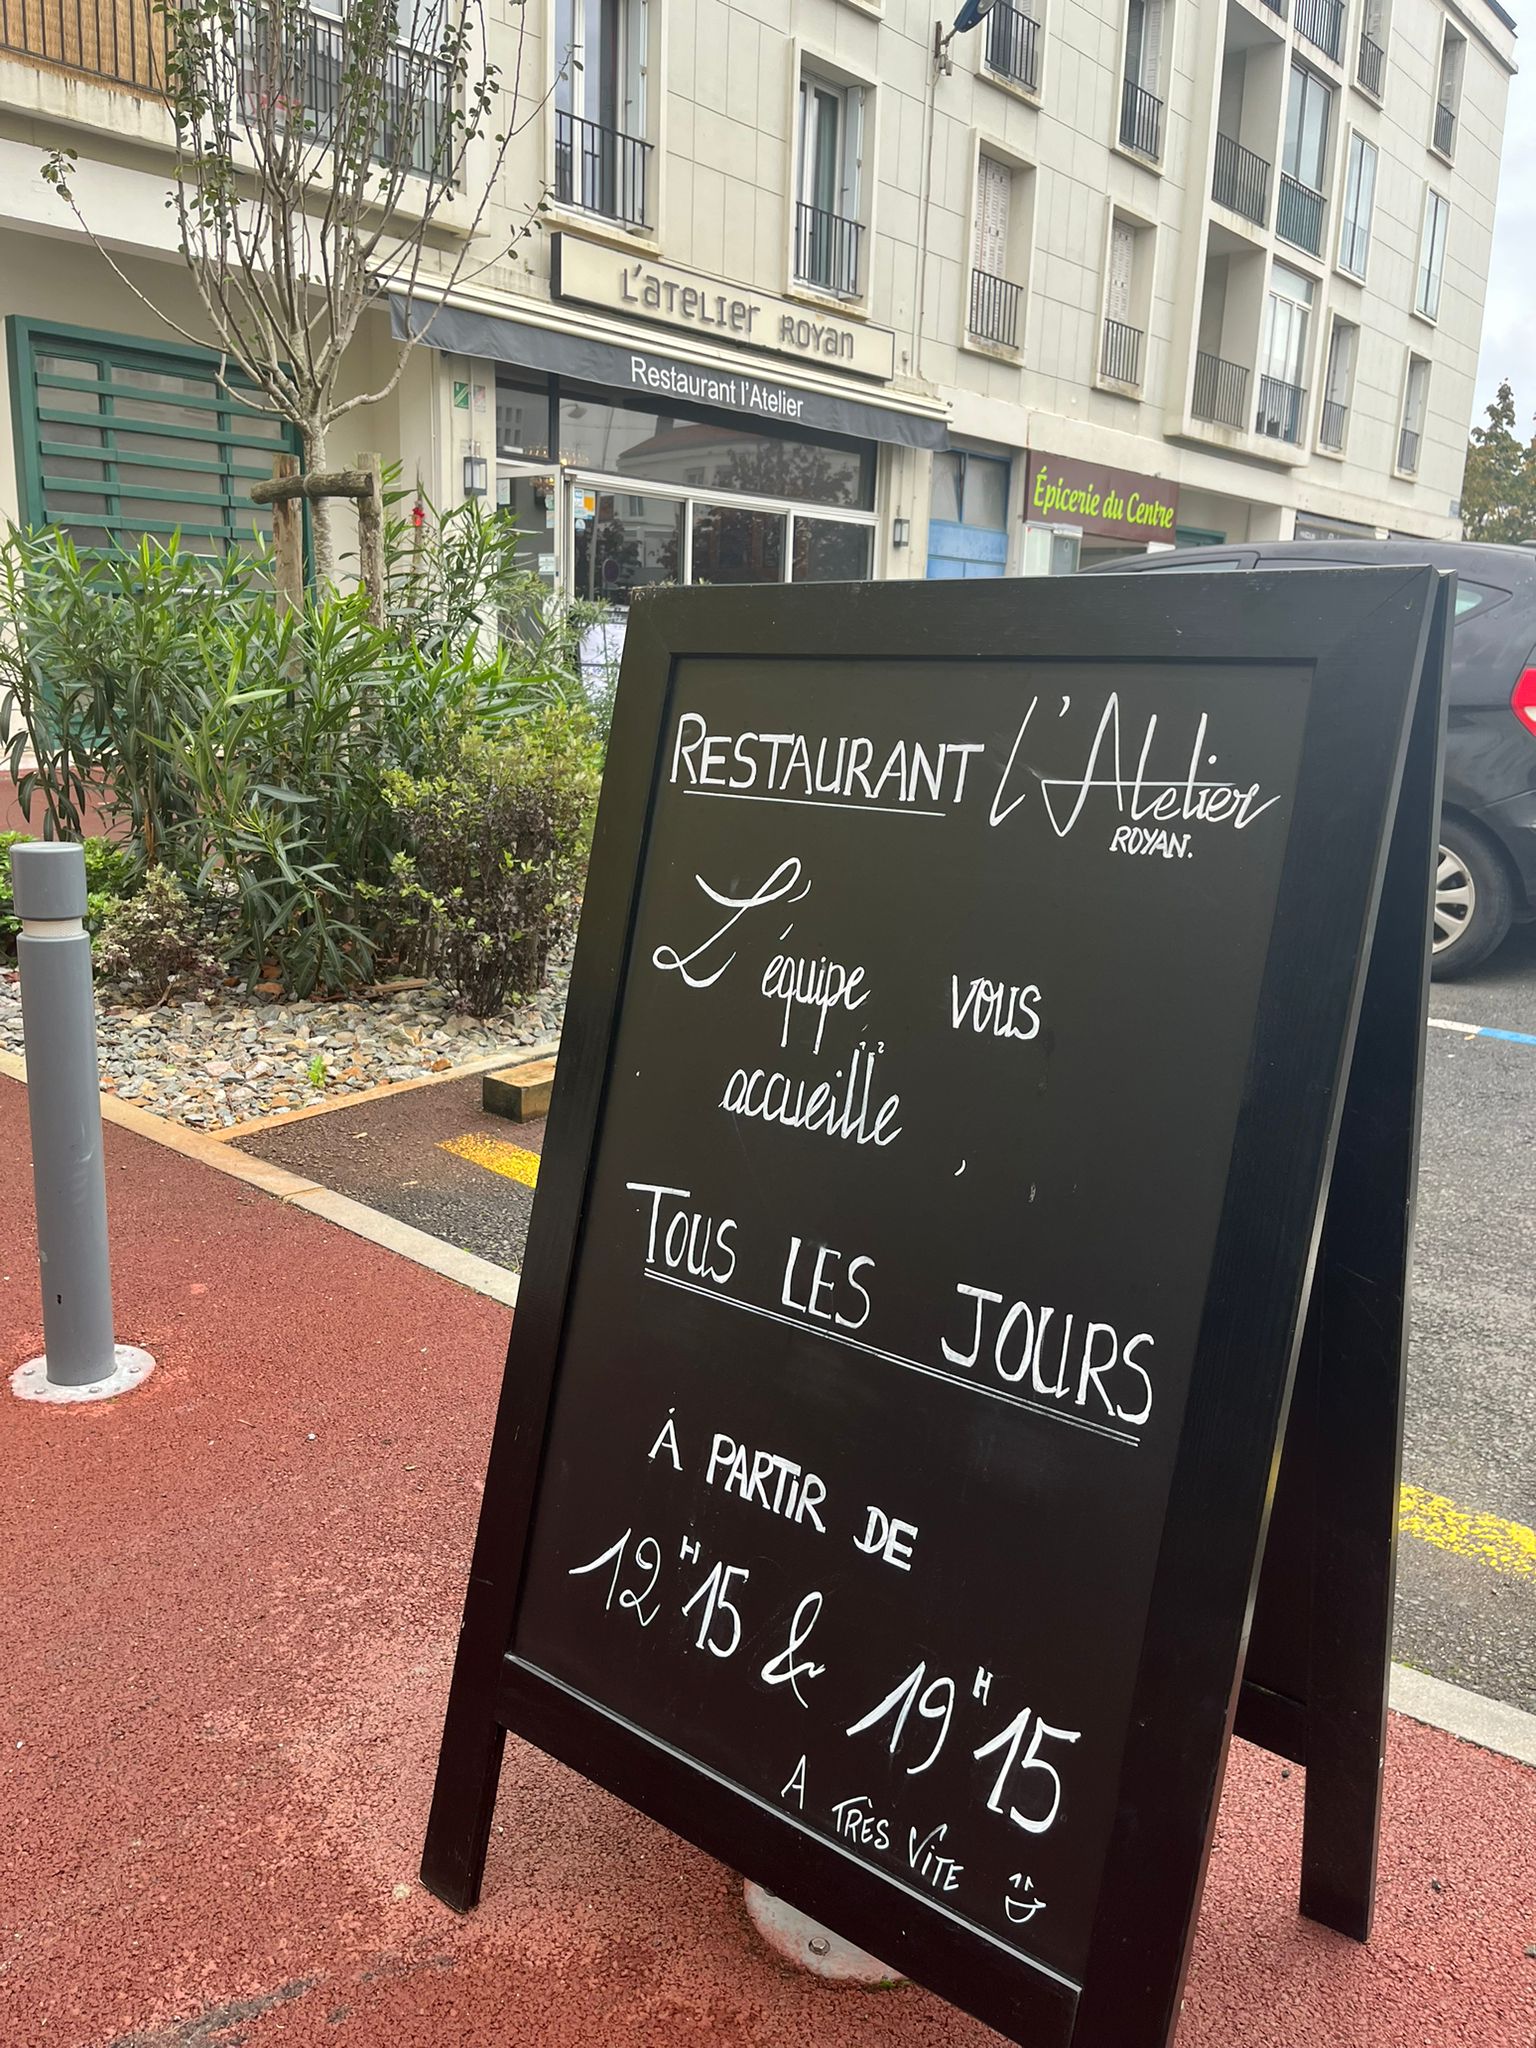 L'ATELIER ROYAN
Restaurant l'Atelier
Épicerie du Centre
RESTAURANT l'Atelier
ROYAN.
L'équipe vous
accueille
TOUS LES JOURS
À PARTIR DE
12H15 & 19H15
A TRÈS VITE